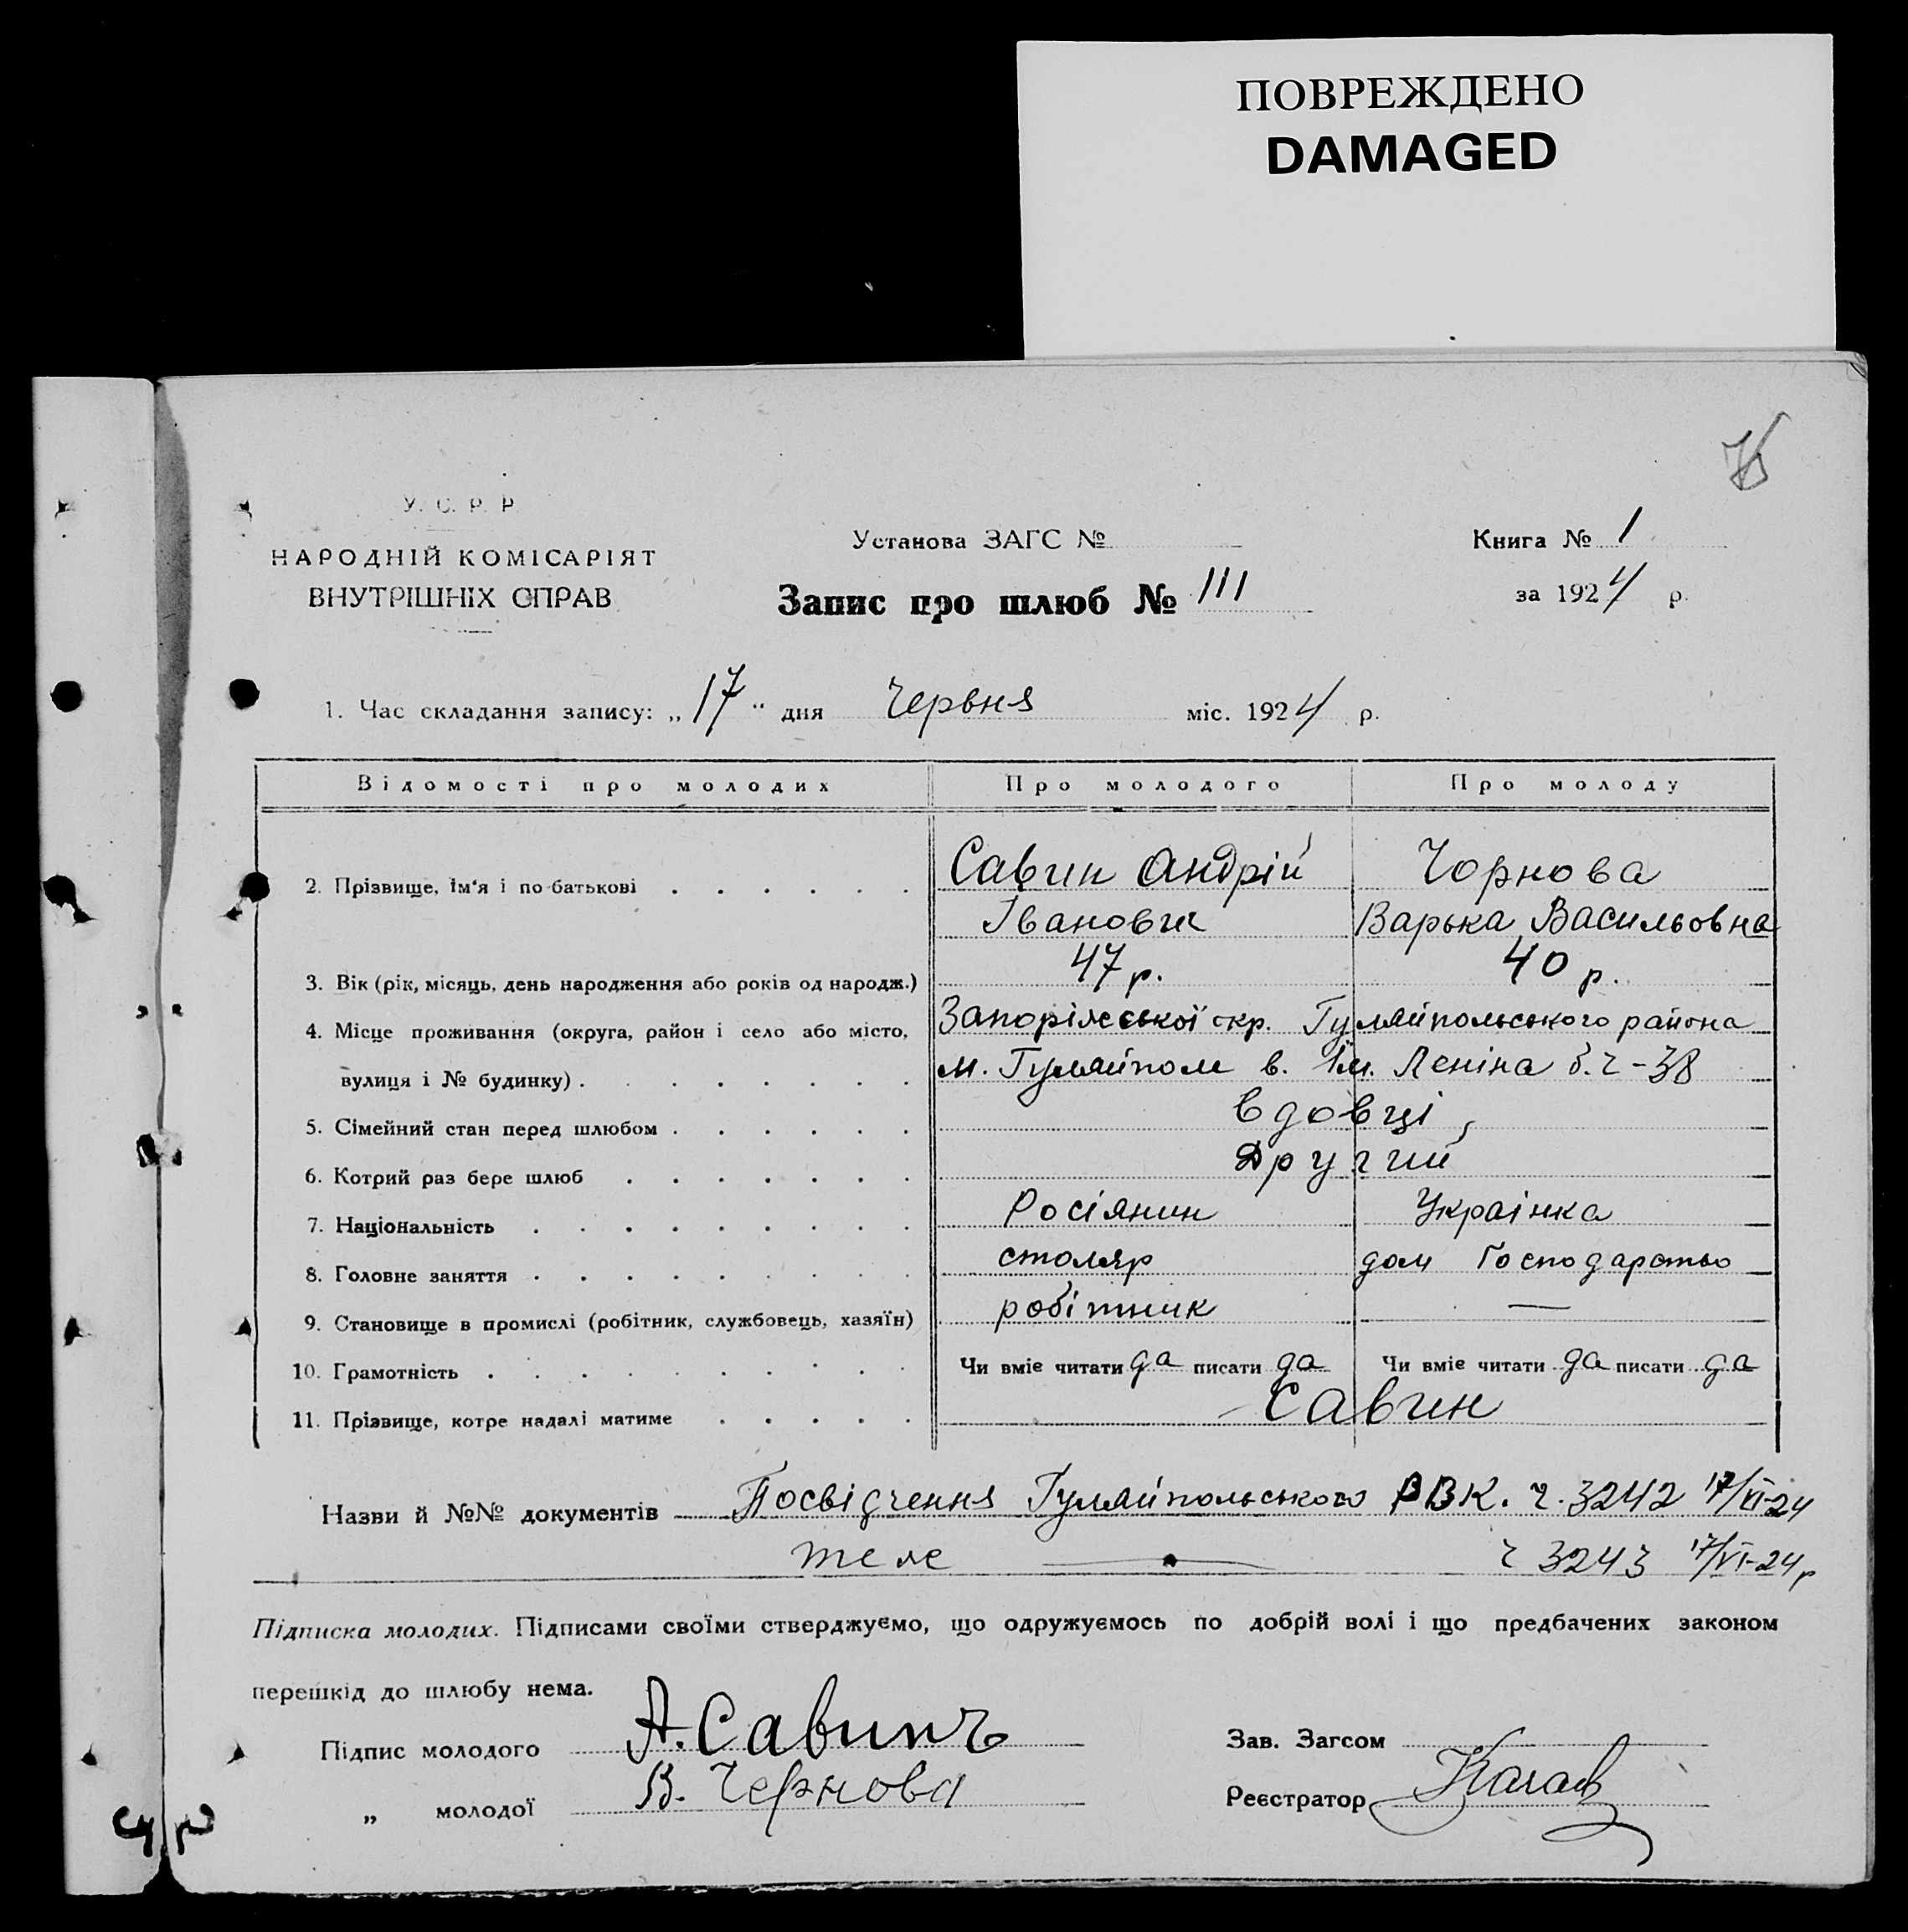 ПОВРЕЖДЕНО
DAMAGED
У. С. Р. Р.
НАРОДНІЙ КОМІСАРІЯТ
ВНУТРІШНІХ СПРАВ
Установа ЗАГС №
Запис про шлюб № 111
Книга № 1
за 1924 р.
1. Час складання запису: „17“ дня Червня міс. 1924 р.
Відомості про молодих Про молодого Про молоду
2. Прізвище, ім‘я і по-батькові Савин Андрій Чорнова
Іванович Варька Васильовна
3. Вік (рік, місяць, день народження або років од народж.) 47 р. 40 р.
4. Місце проживання (округа, район і село або місто, Запоріжської окр. Гуляйпольського района
вулиця і № будинку) м. Гуляйполе в. Ім. Леніна б. ч-38
5. Сімейний стан перед шлюбом вдовці
6. Котрий раз бере шлюб Другий
7. Національність Росіянин Украінка
8. Головне заняття столяр дом Господарство
9. Становище в промислі (робітник, службовець, хазяїн) робітник —
10. Грамотність Чи вміє читати да писати да Чи вміє читати да писати да
11. Прізвище, котре надалі матиме Савин
Назви й №№ документів Посвідчення Гуляйпольського РВК. ч. 3242 17/VI-24
теж — ч 3243 17/VI-24 р
Підписка молодих. Підписами своїми стверджуємо, що одружуємось по добрій волі і що предбачених законом
перешкід до шлюбу нема.
Підпис молодого А. Савинъ
„ молодої В. Чернова
Зав. Загсом
Реєстратор